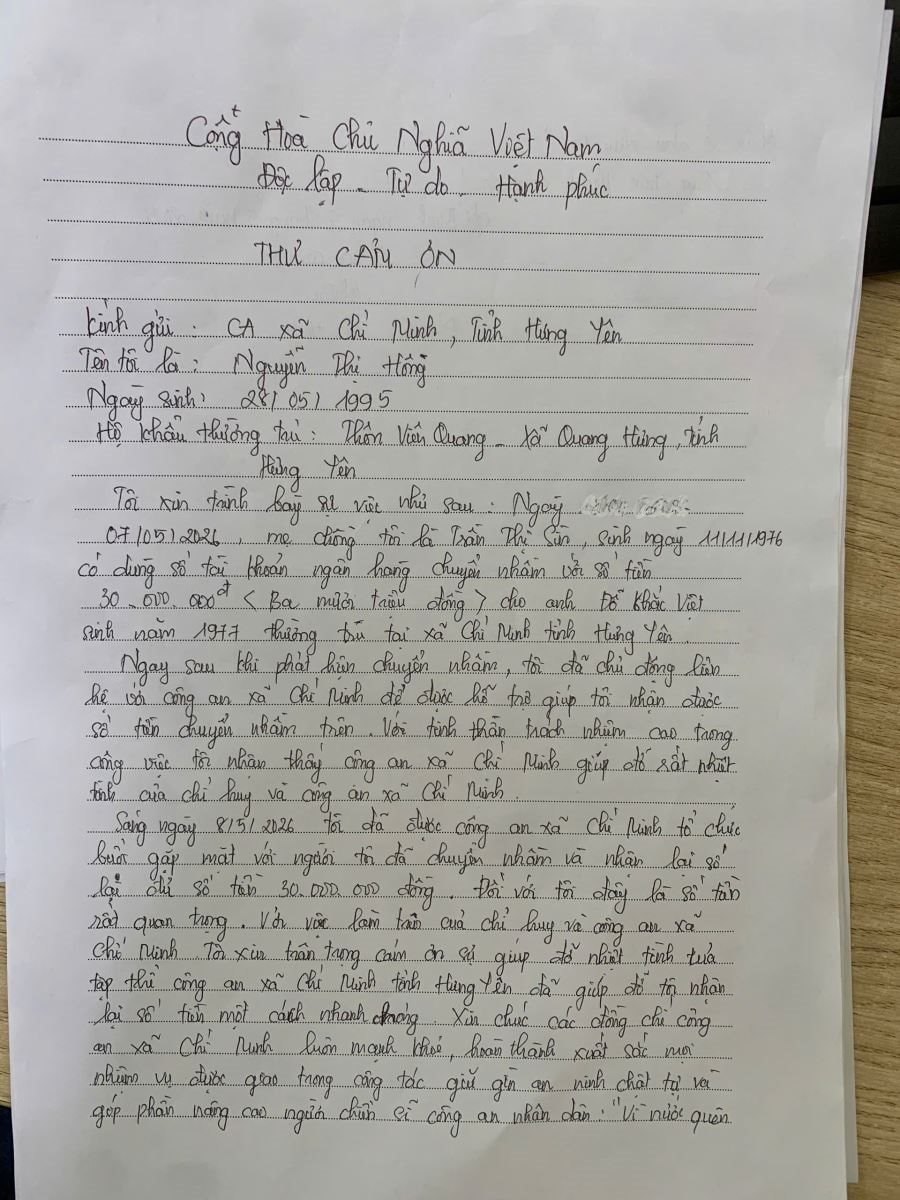 Cộng Hoà Chủ Nghĩa Việt Nam
Độc lập - Tự do - Hạnh phúc
THƯ CẢM ƠN
Kính gửi : CA xã Chí Minh, Tỉnh Hưng Yên
Tên tôi là : Nguyễn Thị Hồng
Ngày sinh : 28/05/1995
Hộ khẩu thường trú : Thôn Viên Quang - Xã Quang Hưng, tỉnh
Hưng Yên
Tôi xin trình bày sự việc như sau : Ngày
07/05/2026, mẹ chồng tôi là Trần Thị Sin, sinh ngày 11/11/1976
có dùng số tài khoản ngân hàng chuyển nhầm với số tiền
30.000.000đ < Ba mươi triệu đồng > cho anh Đỗ Khắc Việt
sinh năm 1977 thường trú tại xã Chí Minh tỉnh Hưng Yên.
Ngay sau khi phát hiện chuyển nhầm, tôi đã chủ động liên
hệ với công an xã Chí Minh để được hỗ trợ giúp tôi nhận được
số tiền chuyển nhầm trên. Với tinh thần trách nhiệm cao trong
công việc tôi nhận thấy công an xã Chí Minh giúp đỡ rất nhiệt
tình của chỉ huy và công an xã Chí Minh.
Sáng ngày 8/5/2026 tôi đã được công an xã Chí Minh tổ chức
buổi gặp mặt với người tôi đã chuyển nhầm và nhận lại số
lại đủ số tiền 30.000.000 đồng. Đối với tôi đây là số tiền
rất quan trọng. Với việc làm trên của chỉ huy và công an xã
Chí Minh Tôi xin trân trọng cảm ơn sự giúp đỡ nhiệt tình của
tập thể công an xã Chí Minh tỉnh Hưng Yên đã giúp đỡ tôi nhận
lại số tiền một cách nhanh chóng. Xin chúc các đồng chí công
an xã Chí Minh luôn mạnh khoẻ, hoàn thành xuất sắc mọi
nhiệm vụ được giao trong công tác giữ gìn an ninh chật tự và
góp phần nâng cao người chiến sĩ công an nhân dân : "Vì nước quên